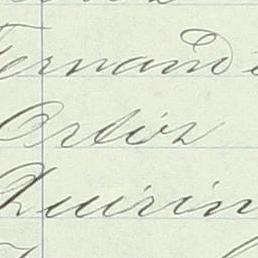 Fernande
Ortiz
Quirin